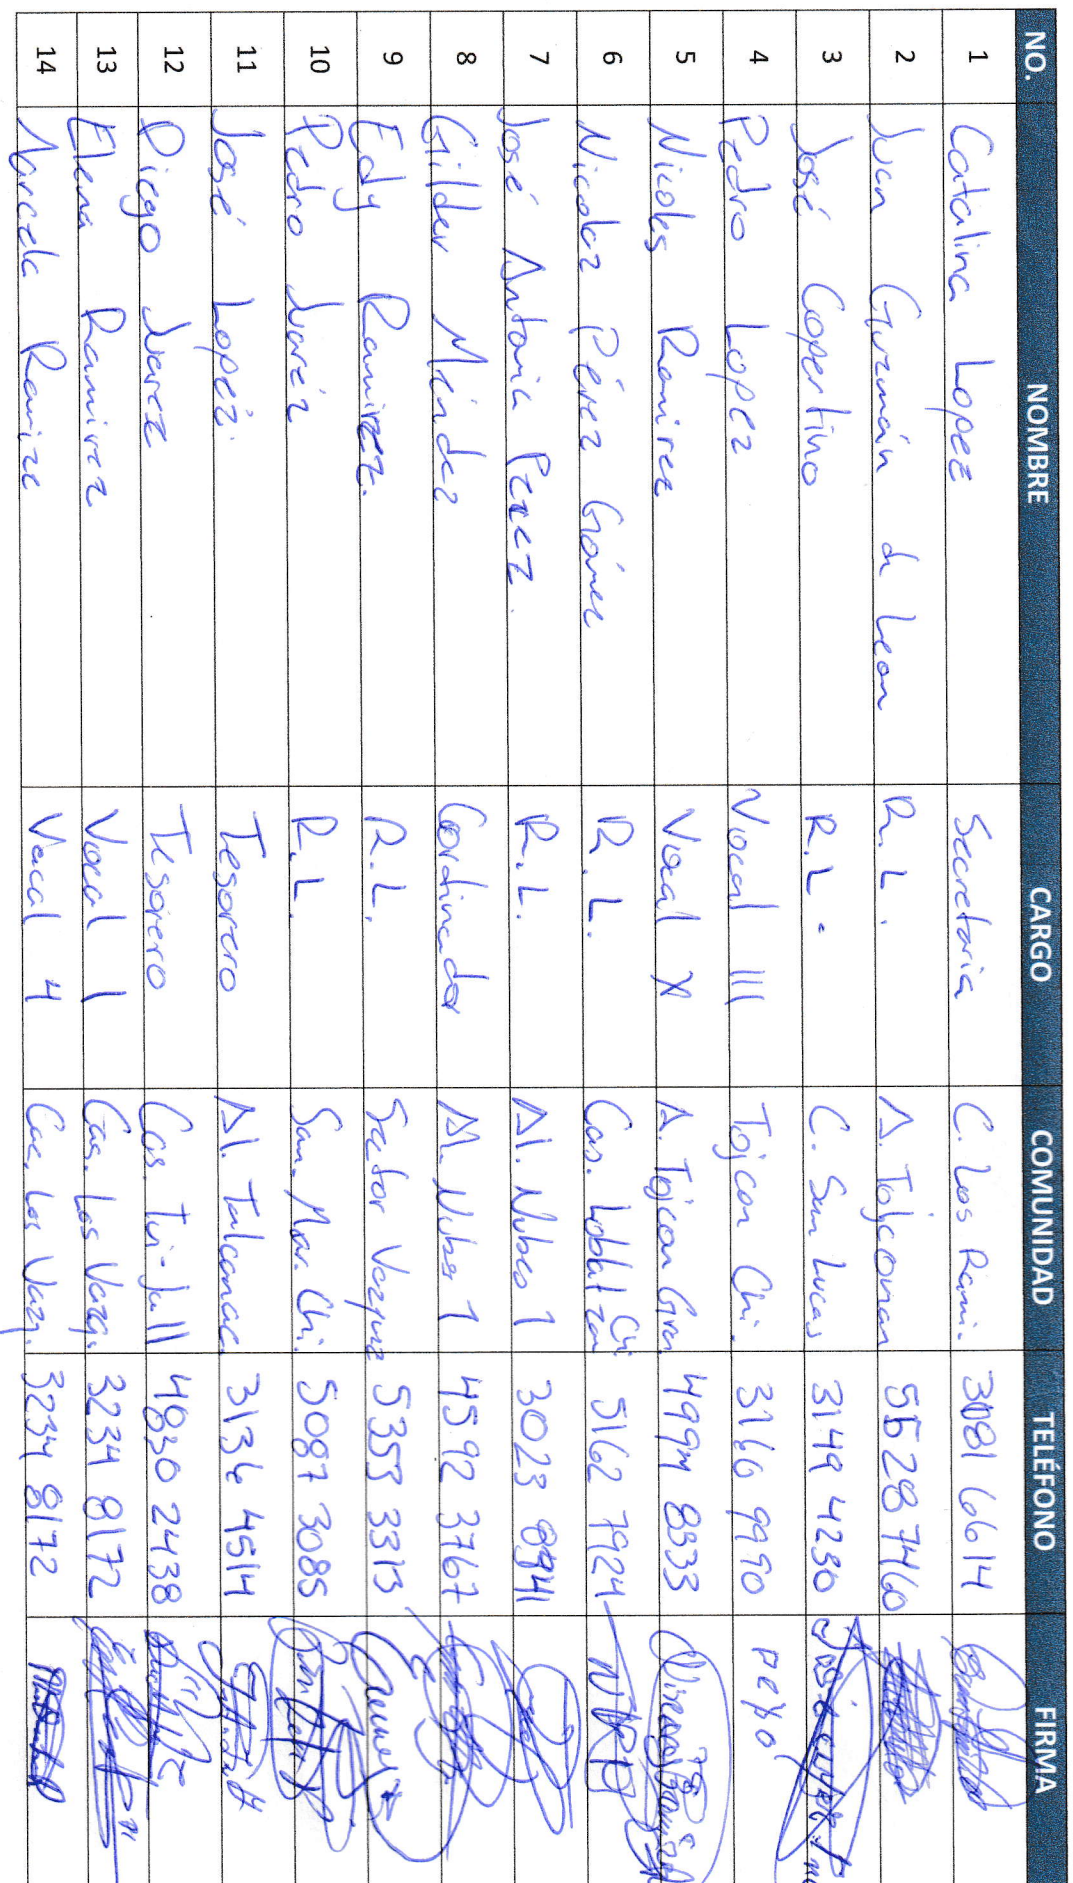 NO. NOMBRE CARGO COMUNIDAD TELÉFONO FIRMA
1 Catalina Lopez Secretaria C. Los Rami. 3081 6614
2 Juan Guzmán de Leon R.L. A. Tojcoman 5528 7460
3 José Copertino R.L. C. San Lucas 3149 4230
4 Pedro Lopez Vocal III Tojcon Chi. 3166 9990 Pexo
5 Nicolas Ramirez Vocal X A. Tojcon Gran. 4994 8333
6 Nicolaz Pérez Gómez R.L. Cas. Loblatzan Chi. 5162 7924
7 José Antonia Perez. R.L. Al. Nubes 1 3023 8941
8 Gilder Méndez Cordinador Al. Nubes 1 4592 3767
9 Edy Ramirez. R.L. Sector Vazquez 5353 3313
10 Pedro Juaréz R.L. San. Mar. Chi. 5087 3085
11 José Lopéz. Tesorero Al. Tulcanac. 3136 4514
12 Diego Juarez Tesorero Cas. Tui-Jall 4830 2438
13 Elena Ramirez Vocal 1 Cas. Los Vazq. 3234 8172
14 Marcela Ramirz Vocal 4 Cac. Los Vazq. 3234 8172